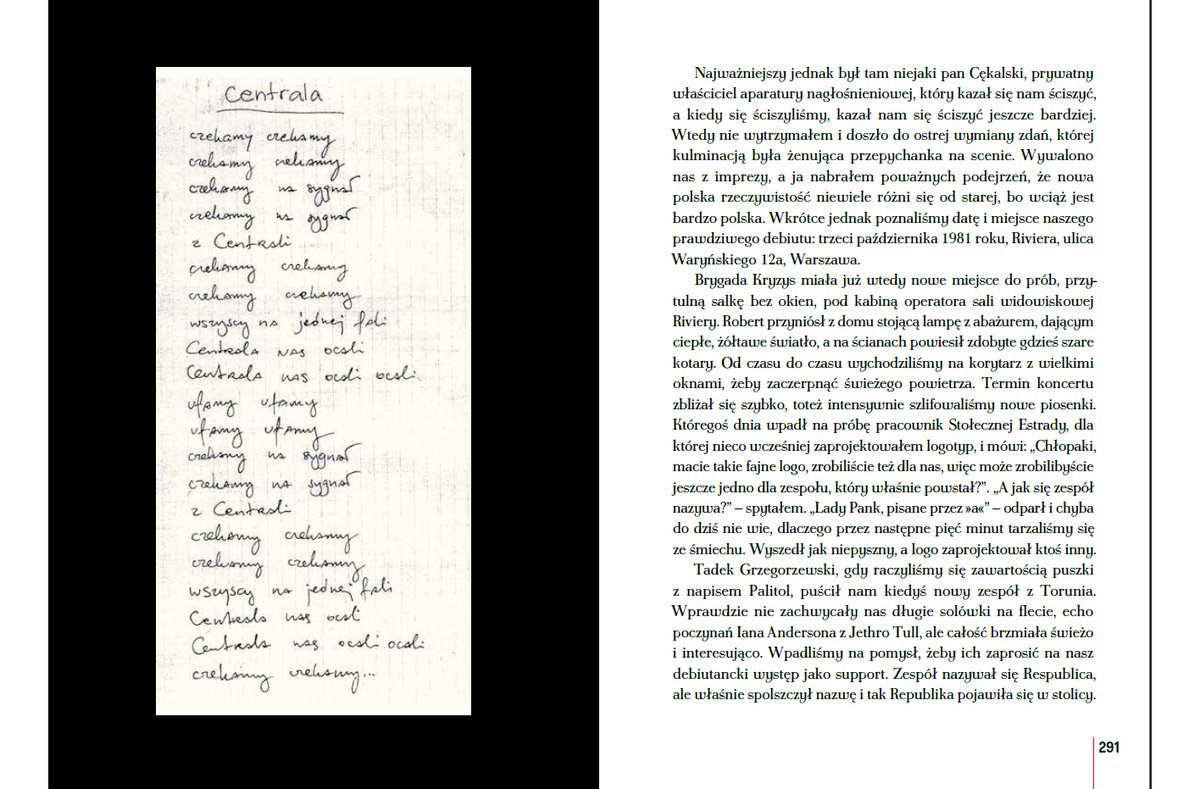 Centrala
czekamy czekamy
czekamy czekamy
czekamy na sygnał
czekamy na sygnał
z Centrali
czekamy czekamy
czekamy czekamy
wszyscy na jednej fali
Centrala nas ocali
Centrala nas ocali ocali
ufamy ufamy
ufamy ufamy
czekamy na sygnał
czekamy na sygnał
z Centrali
czekamy czekamy
czekamy czekamy
wszyscy na jednej fali
Centrala nas ocali
Centrala nas ocali ocali
czekamy czekamy...
Najważniejszy jednak był tam niejaki pan Cękalski, prywatny
właściciel aparatury nagłośnieniowej, który kazał się nam ściszyć,
a kiedy się ściszyliśmy, kazał nam się ściszyć jeszcze bardziej.
Wtedy nie wytrzymałem i doszło do ostrej wymiany zdań, której
kulminacją była żenująca przepychanka na scenie. Wywalono
nas z imprezy, a ja nabrałem poważnych podejrzeń, że nowa
polska rzeczywistość niewiele różni się od starej, bo wciąż jest
bardzo polska. Wkrótce jednak poznaliśmy datę i miejsce naszego
prawdziwego debiutu: trzeci października 1981 roku, Riviera, ulica
Waryńskiego 12a, Warszawa.
Brygada Kryzys miała już wtedy nowe miejsce do prób, przy-
tulną salkę bez okien, pod kabiną operatora sali widowiskowej
Riviery. Robert przyniósł z domu stojącą lampę z abażurem, dającym
ciepłe, żółtawe światło, a na ścianach powiesił zdobyte gdzieś szare
kotary. Od czasu do czasu wychodziliśmy na korytarz z wielkimi
oknami, żeby zaczerpnąć świeżego powietrza. Termin koncertu
zbliżał się szybko, toteż intensywnie szlifowaliśmy nowe piosenki.
Któregoś dnia wpadł na próbę pracownik Stołecznej Estrady, dla
której nieco wcześniej zaprojektowałem logotyp, i mówi: „Chłopaki,
macie takie fajne logo, zrobiliście też dla nas, więc może zrobilibyście
jeszcze jedno dla zespołu, który właśnie powstał?”. „A jak się zespół
nazywa?” – spytałem. „Lady Pank, pisane przez »a«” – odparł i chyba
do dziś nie wie, dlaczego przez następne pięć minut tarzaliśmy się
ze śmiechu. Wyszedł jak niepyszny, a logo zaprojektował ktoś inny.
Tadek Grzegorzewski, gdy raczyliśmy się zawartością puszki
z napisem Palitol, puścił nam kiedyś nowy zespół z Torunia.
Wprawdzie nie zachwycały nas długie solówki na flecie, echo
poczynań Iana Andersona z Jethro Tull, ale całość brzmiała świeżo
i interesująco. Wpadliśmy na pomysł, żeby ich zaprosić na nasz
debiutancki występ jako support. Zespół nazywał się Respublica,
ale właśnie spolszczył nazwę i tak Republika pojawiła się w stolicy.
291